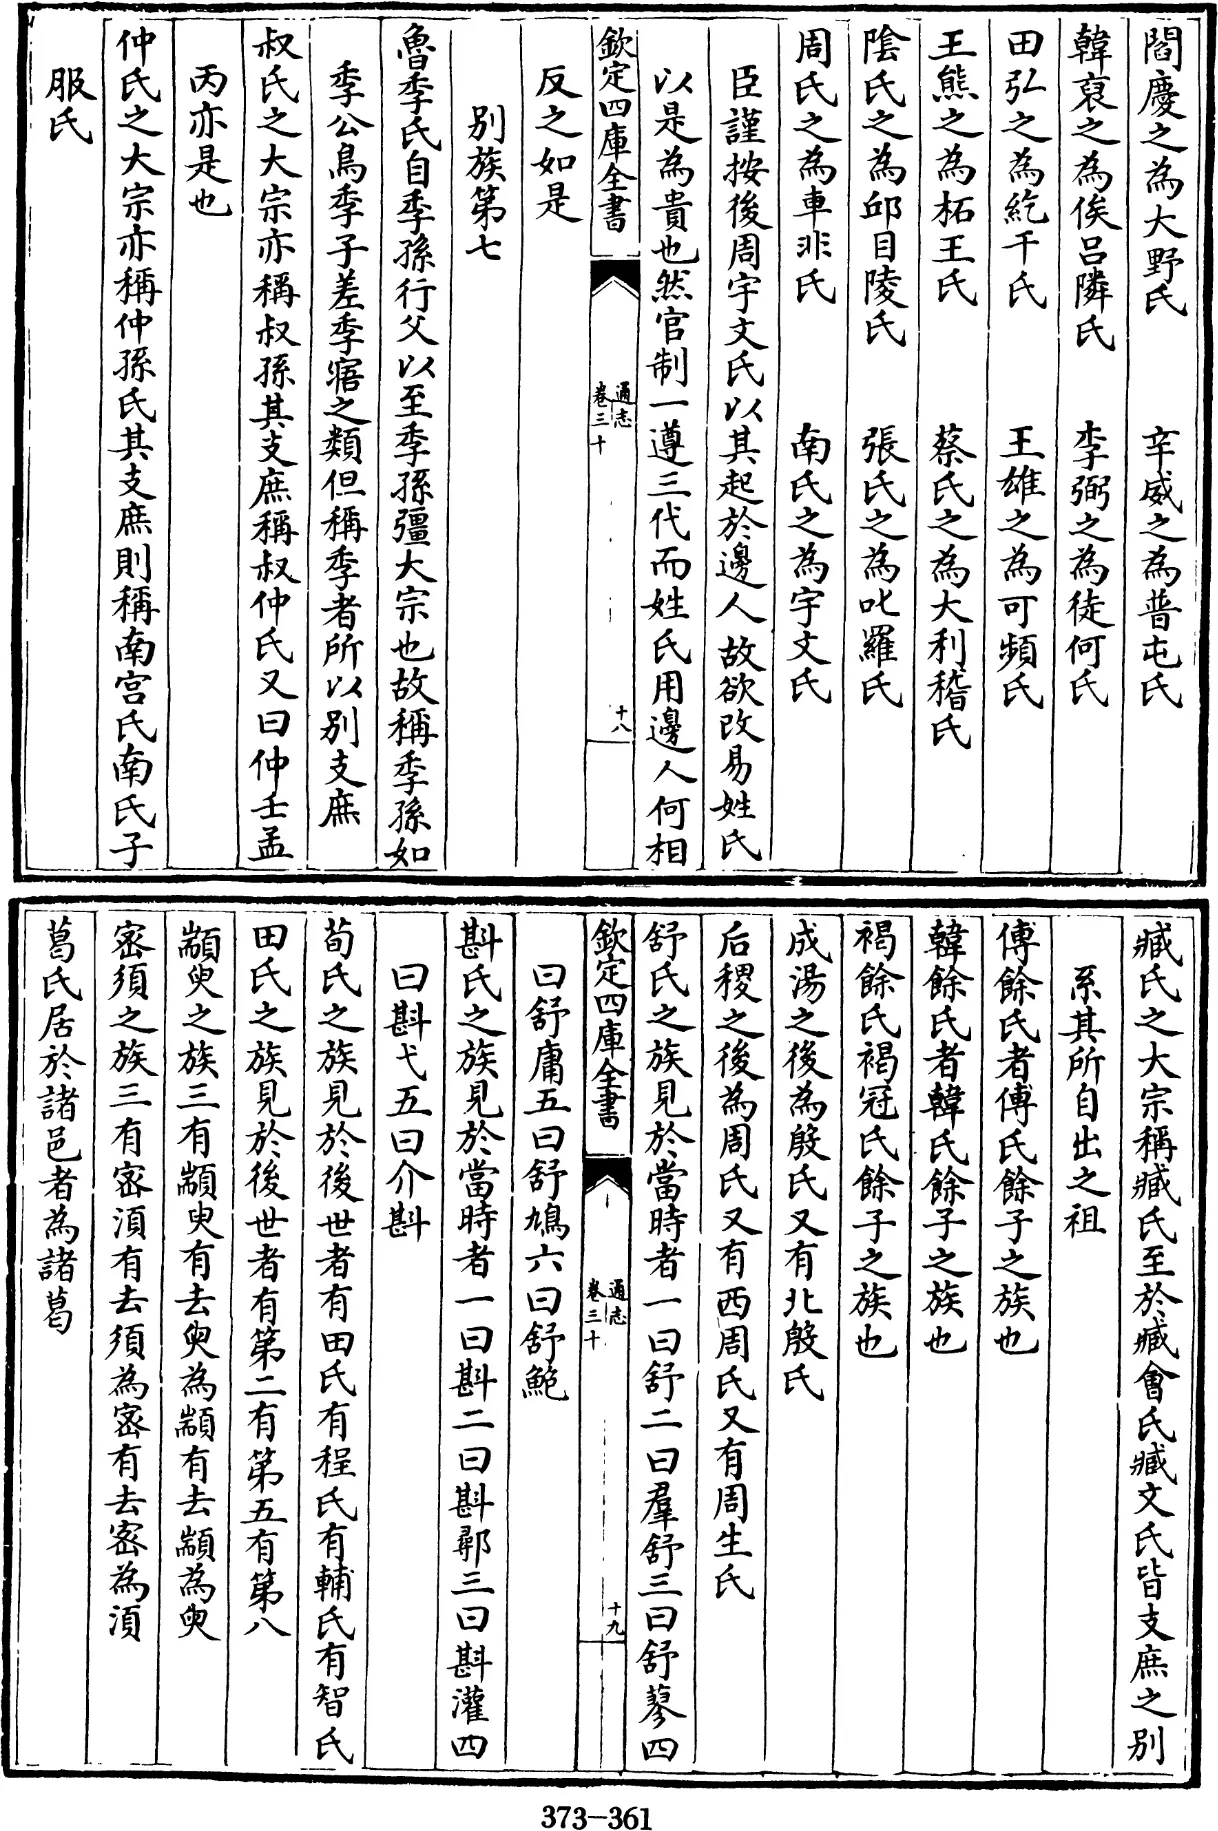 閻慶之為大野氏　辛威之為普屯氏
韓裒之為俟呂隣氏　李弼之為徒何氏
田弘之為紇干氏　王雄之為可頻氏
王熊之為柘王氏　蔡氏之為大利稽氏
陰氏之為邱目陵氏　張氏之為叱羅氏
周氏之為車非氏　南氏之為宇文氏
臣謹按後周宇文氏以其起於邊人故欲改易姓氏
以是為貴也然官制一遵三代而姓氏用邊人何相
欽定四庫全書　通志卷三十　十八
反之如是
別族第七
魯季氏自季孫行父以至季孫彊大宗也故稱季孫如
季公鳥季子差季寤之類但稱季者所以別支庶
叔氏之大宗亦稱叔孫其支庶稱叔仲氏又曰仲壬孟
丙亦是也
仲氏之大宗亦稱仲孫氏其支庶則稱南宮氏南氏子
服氏
臧氏之大宗稱臧氏至於臧會氏臧文氏皆支庶之別
系其所自出之祖
傅餘氏者傅氏餘子之族也
韓餘氏者韓氏餘子之族也
褐餘氏褐冠氏餘子之族也
成湯之後為殷氏又有北殷氏
后稷之後為周氏又有西周氏又有周生氏
舒氏之族見於當時者一曰舒二曰羣舒三曰舒蓼四
欽定四庫全書　通志卷三十　十九
曰舒庸五曰舒鳩六曰舒鮑
斟氏之族見於當時者一曰斟二曰斟鄩三曰斟灌四
曰斟弋五曰介斟
荀氏之族見於後世者有田氏有程氏有輔氏有智氏
田氏之族見於後世者有第二有第五有第八
顓臾之族三有顓臾有去臾為顓有去顓為臾
密須之族三有密湏有去須為密有去密為湏
葛氏居於諸邑者為諸葛
373-361